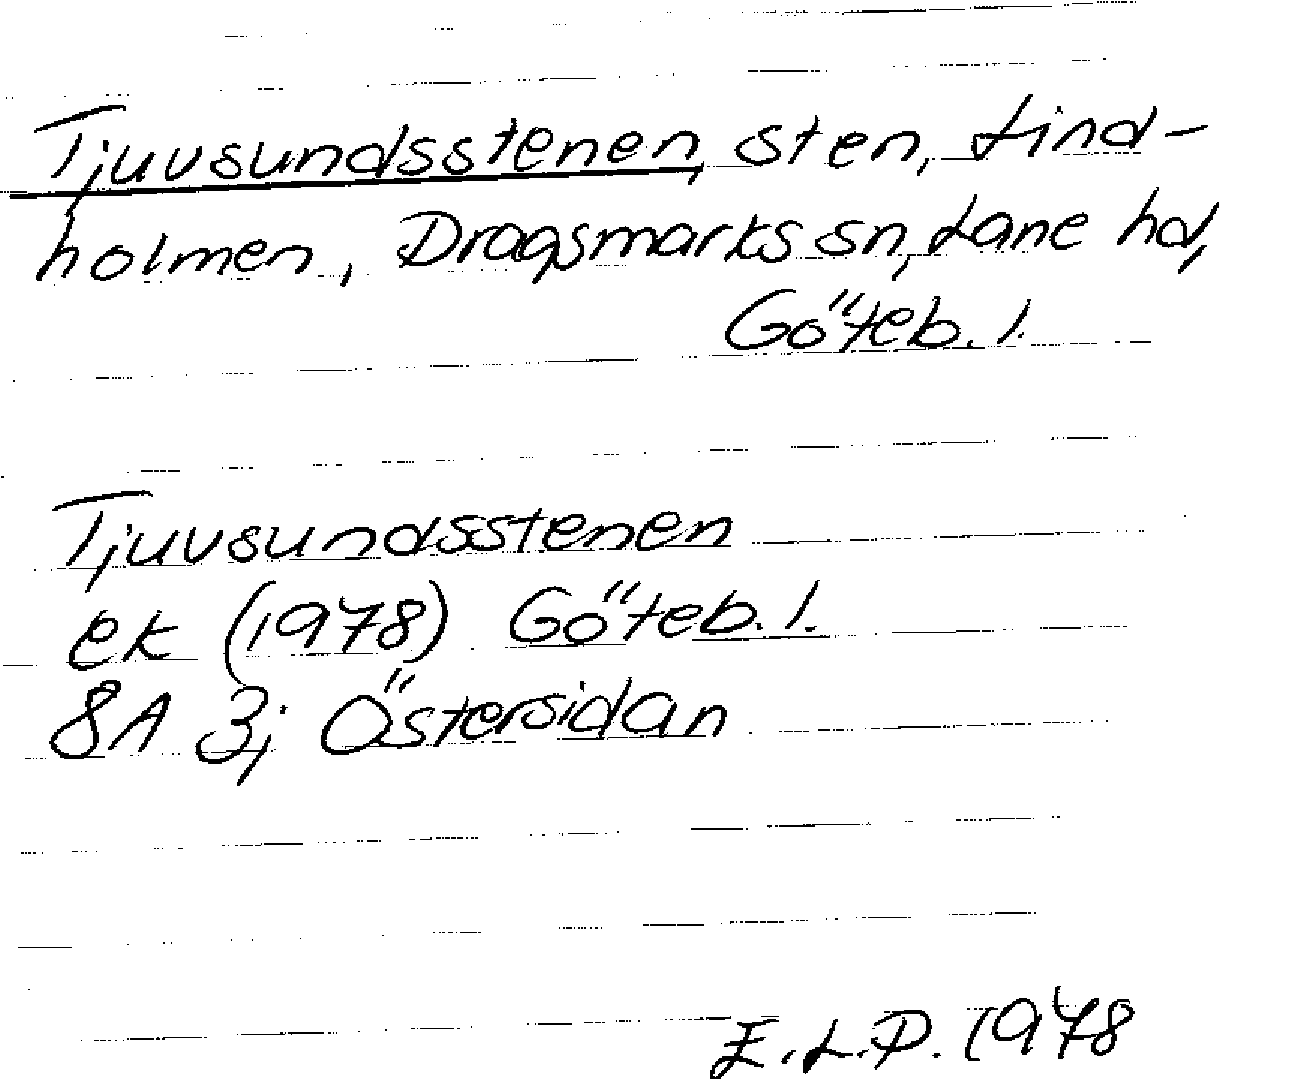 Tjuvsundsstenen, sten, Lind-
holmen, Dragsmarks sn, Lane hd,
Göteb. l.
Tjuvsundsstenen
ek (1978) Göteb. l.
8A 3; Östersidan
E.L.P. 1978